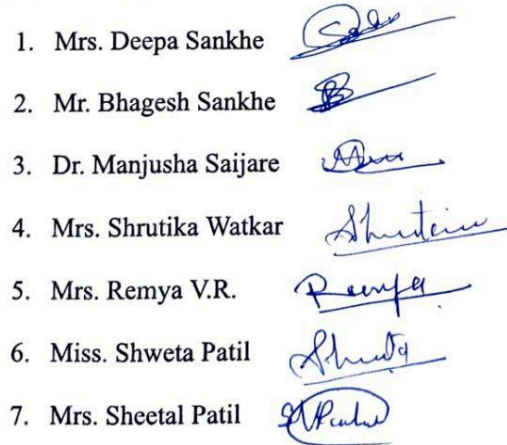 1. Mrs. Deepa Sankhe
2. Mr. Bhagesh Sankhe
3. Dr. Manjusha Saijare
4. Mrs. Shrutika Watkar
5. Mrs. Remya V.R. Remya
6. Miss. Shweta Patil
7. Mrs. Sheetal Patil